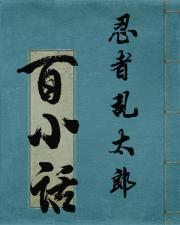 忍者乱太郎
百小话